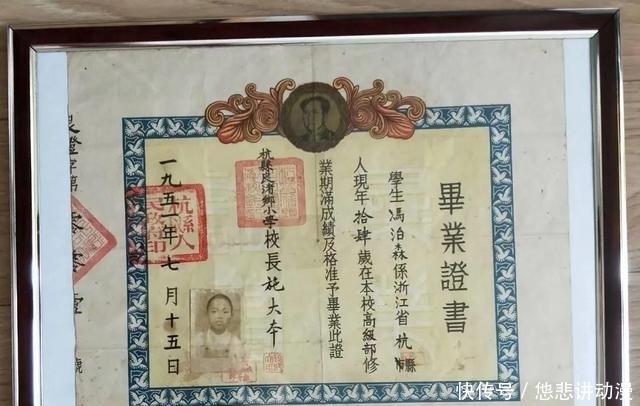 畢業證書
學生馮泊森係浙江省杭縣市
人現年拾肆歲在本校高級部修
業期滿成績及格准予畢業此證
杭縣良渚鄉小學校長施大本
一九五一年七月十五日
杭縣人
證字第
號
快传号/您悲讲动漫